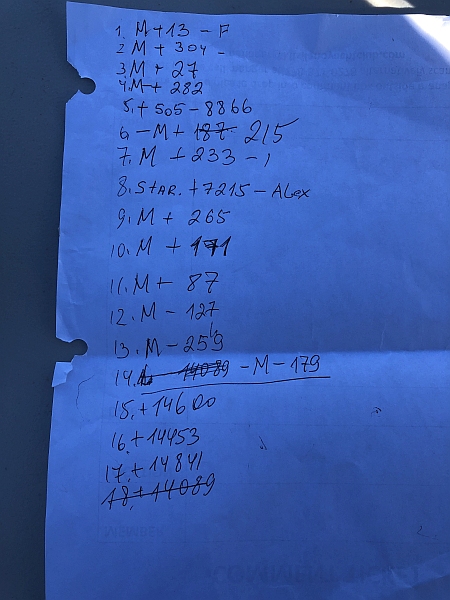 1. M + 13 - F
2 M + 304 -
3 M + 27
4. M + 282
5. + 505 - 8866
6. - M + 187 215
7. M + 233 - 1
8. STAR. + 7215 - ALex
9. M + 265
10. M + 171
11. M + 87
12. M - 127
13. M - 259
14. 14089 - M - 179
15. + 14600
16. + 14453
17. + 14841
18. + 14089